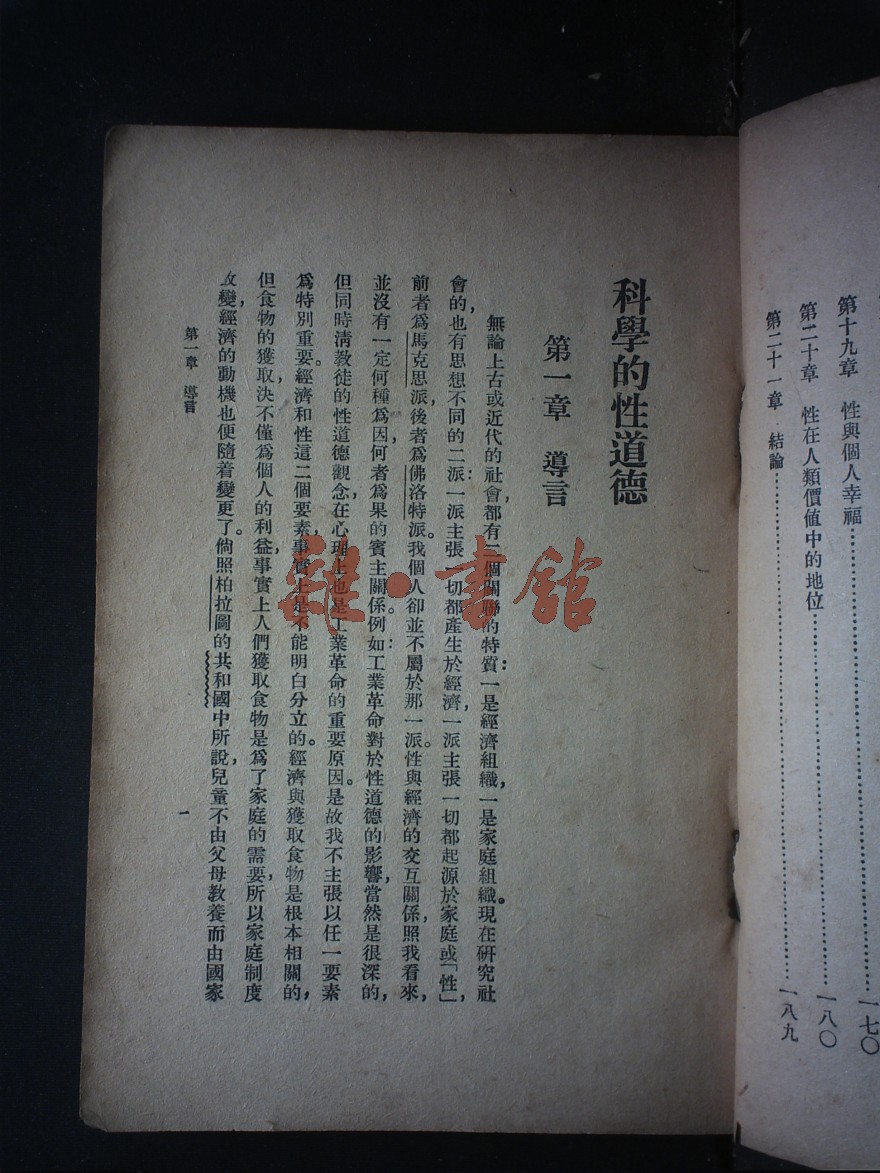 第十九章　性與個人幸福……一七〇
第二十章　性在人類價值中的地位……一八〇
第二十一章　結論……一八九
科學的性道德
第一章　導言
無論上古或近代的社會，都有二個關聯的特質：一是經濟組織，一是家庭組織。現在研究社
會的，也有思想不同的二派：一派主張一切都產生於經濟，一派主張一切都起源於家庭或「性」，
前者爲馬克思派，後者爲佛洛特派。我個人卻並不屬於那一派。性與經濟的交互關係，照我看來，
並沒有一定何種爲因，何者爲果的賓主關係。例如：工業革命對於性道德的影響，當然是很深的，
但同時清教徒的性道德觀念，在心理上也是工業革命的重要原因。是故我不主張以任一要素
爲特別重要。經濟和性這二個要素，事實上是不能明白分立的。經濟與獲取食物是根本相關的，
但食物的獲取，決不僅爲個人的利益，事實上人們獲取食物是爲了家庭的需要，所以家庭制度
改變，經濟的動機也便隨着變更了。倘照柏拉圖的共和國中所說，兒童不由父母教養而由國家
第一章　導言
一
雜·書館